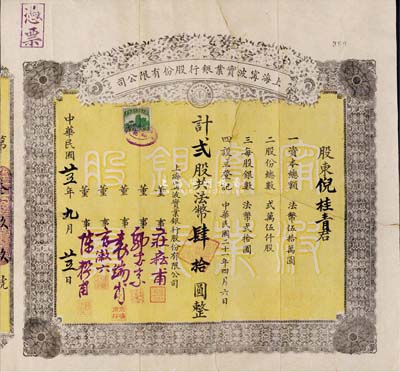 憑票
上海寧波實業銀行股份有限公司
股東倪桂青君
一資本總額 法幣伍拾萬圓
二股份總數 弍萬伍仟股
三每股銀數 法幣弍拾圓
四設立登記 中華民國二十一年四月六日
計弍股共法幣肆拾圓整
上海寧波實業銀行股份有限公司
董事
董事
董事
董事
董事
莊崧甫
中華民國廿五年九月廿五日
第
玖
號